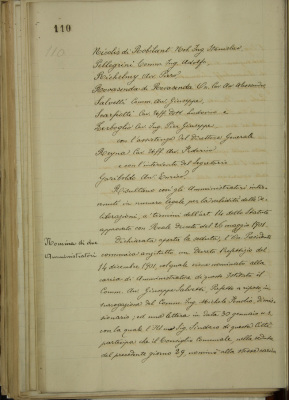 110
Nicolis di Robilant Nob. Ing. Stanislao
Pellegrini Comm. Ing. Adolfo
Richelmy Av. Piero
Salvotti Comm. Av. Giuseppe
Scarfiotti Cav. Uff. Dott. Ludovico e
Zerboglio Cav. Ing. Pier Giuseppe
con l'assistenza del Direttore Generale
Rogna Cav. Uff. Av. Federico
e con l'intervento del Segretario
Garibaldo Av.
Risultano così gli Amministratori inter-
venuti in numero legale per la validità delle de-
liberazioni, a' termini dell'art. 14 dello Statuto
approvato con Reale Decreto del 26 maggio 1901.
Nomina di due
Amministratori
Dichiarata aperta la seduta, il Sig. Presidente
comunica anzitutto un Decreto Prefettizio del
14 dicembre 1901, col quale viene nominato alla
carica di Amministratore di questo Istituto il
Comm. Av. Giuseppe Salvotti Prefetto a riposo, in
surrogazione del Comm. Ing. Michele Fenolio, dimis-
sionario; ed una lettera in data 30 gennaio u.s.
con la quale l'Ill.mo Sig. Sindaco di questa Città
partecipa che il Consiglio Comunale, nella seduta
del precedente giorno 29, nominò alla